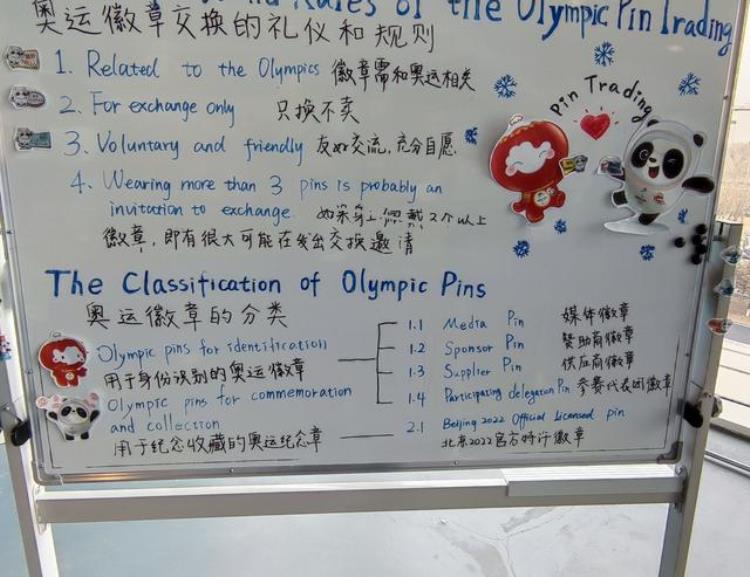 Rules of the Olympic Pin Trading
奥运徽章交换的礼仪和规则
1. Related to the Olympics 徽章需和奥运相关
2. For exchange only 只换不卖
3. Voluntary and friendly 友好交流,充分自愿
4. Wearing more than 3 pins is probably an
invitation to exchange 如果身上佩戴2个以上
徽章,即有很大可能在发出交换邀请
Pin Trading
The Classification of Olympic Pins
奥运徽章的分类
Olympic pins for identification
用于身份识别的奥运徽章
1.1 Media Pin 媒体徽章
1.2 Sponsor Pin 赞助商徽章
1.3 Supplier Pin 供应商徽章
1.4 Participating delegation Pin 参赛代表团徽章
Olympic pins for commemoration
and collection
用于纪念收藏的奥运纪念章
2.1 Beijing 2022 Official Licensed pin
北京2022官方特许徽章